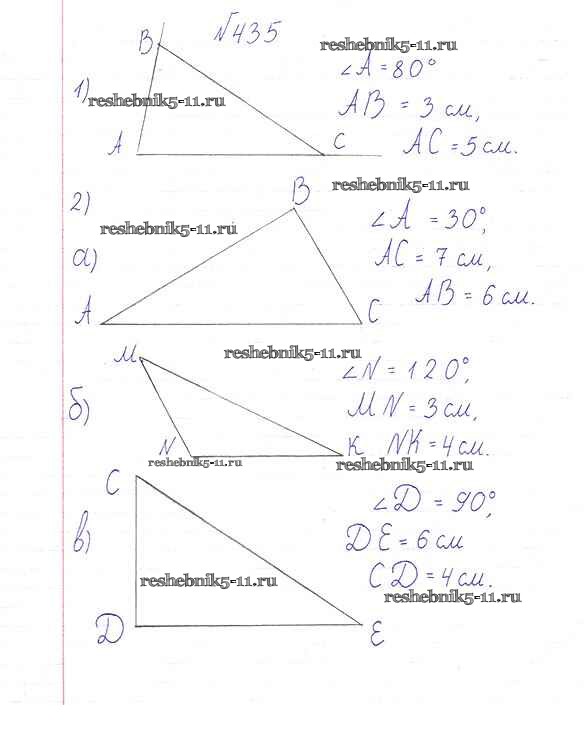 №435
B
reshebnik5-11.ru
∠A=80°
1)
reshebnik5-11.ru
AB = 3 см,
A
C
AC=5 см.
2)
B
reshebnik5-11.ru
reshebnik5-11.ru
∠A =30°,
а)
AC= 7 см,
A
C
AB= 6 см.
M
reshebnik5-11.ru
∠N=120°,
б)
MN=3 см,
N
K
NK=4 см.
reshebnik5-11.ru
reshebnik5-11.ru
C
∠D = 90°,
в)
DE=6 см
reshebnik5-11.ru
CD=4 см.
reshebnik5-11.ru
D
E